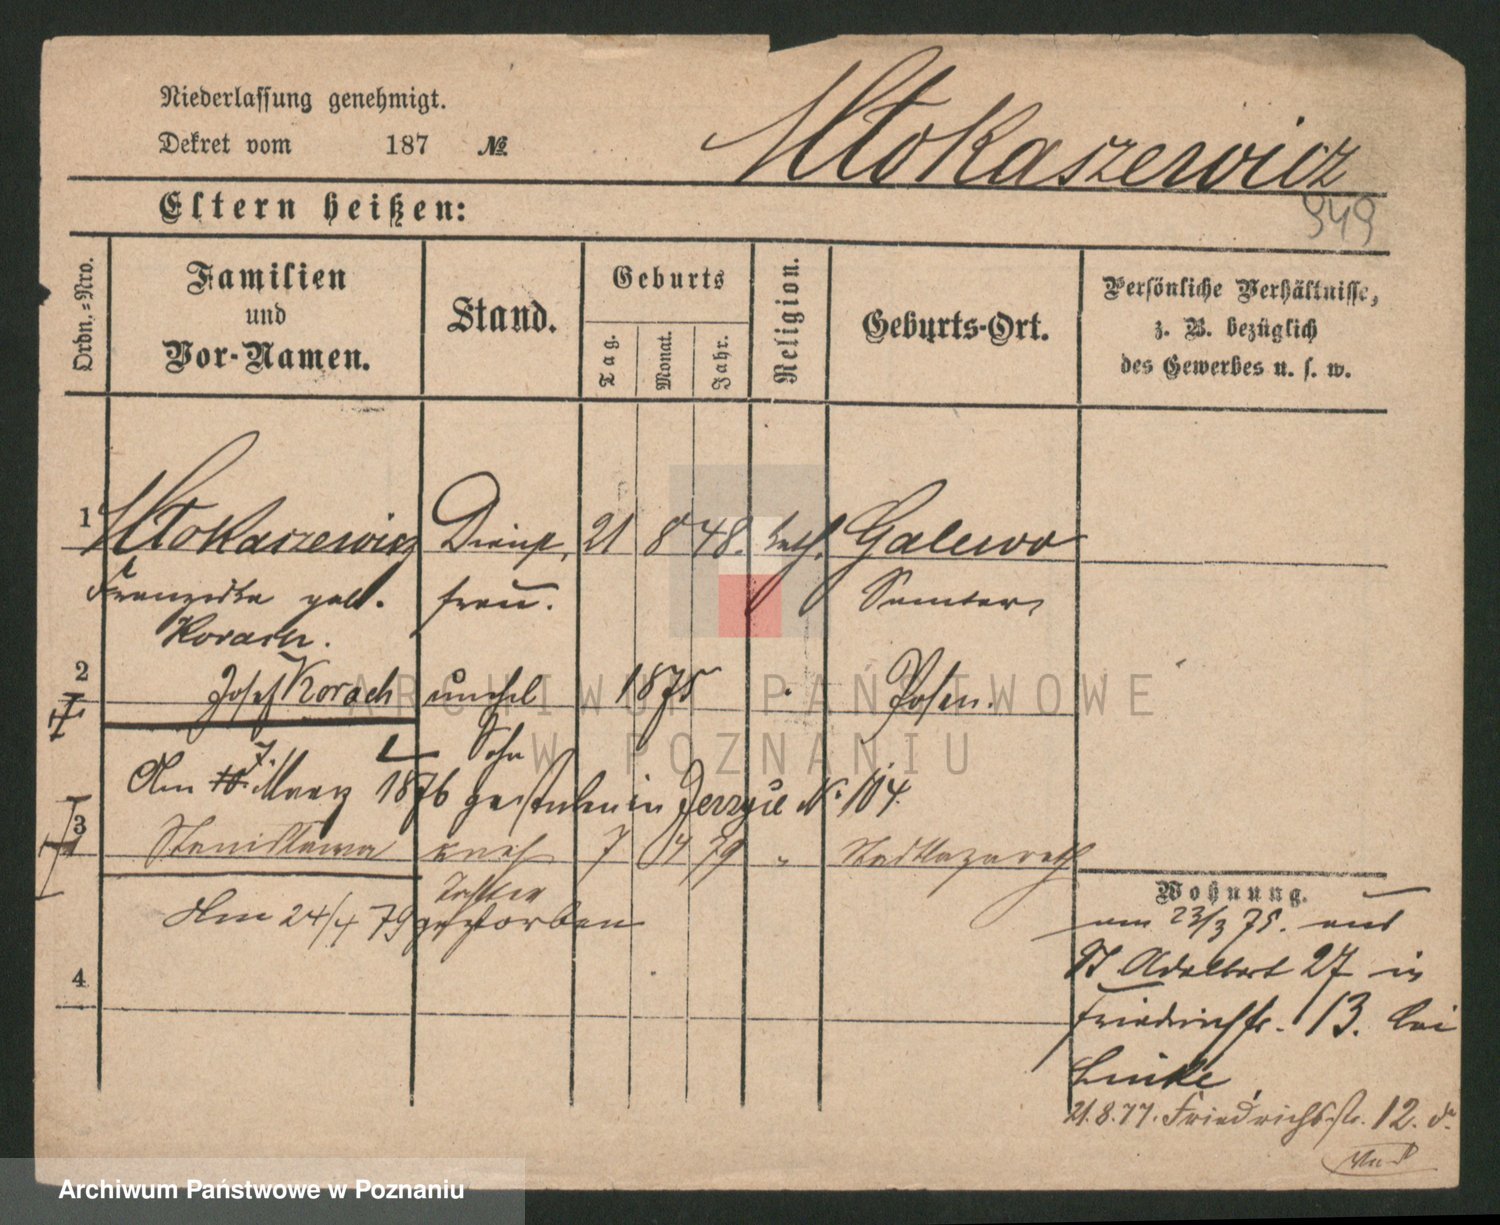 Niederlassung genehmigt.
Dekret vom 187 №
Młokaszewicz
949
Eltern heißen:
Ordn.-Nro.
Familien und Vor-Namen.
Stand.
Geburts
Tag.
Monat.
Jahr.
Religion.
Geburts-Ort.
Persönliche Verhältnisse,
z. B. bezüglich
des Gewerbes u. s. w.
1 Młokaszewicz Dienst, 21 8 48. kath. Galewo
Franziska geb. frau. Samter
Korach.
2 Josef Korach unehel 1875 Posen.
Sohn
Am 7. März 1876 gestorben in Jerzyce № 104.
3 Stanisława uneh 7 4 79 "
Tochter
Am 24/4 79 gestorben
4
Wohnung.
am 23/3 75. aus
St Adalbert 27 in
Friedrichstr. 13. bei
Linke
21.8.77. Friedrichsstr. 12.
ARCHIWUM PAŃSTWOWE
W POZNANIU
Archiwum Państwowe w Poznaniu